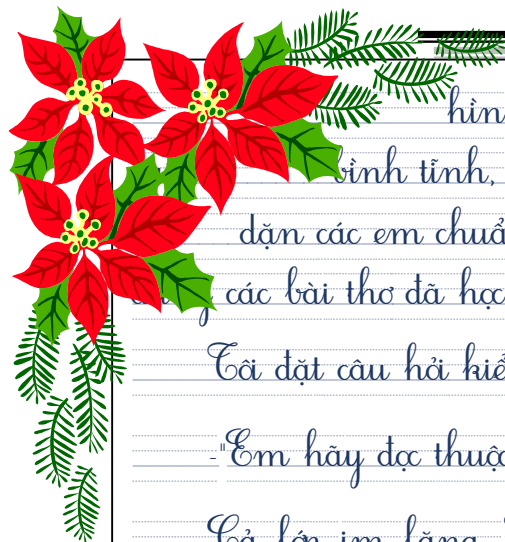 hìn
bình tĩnh,
dặn các em chuẩ
các bài thơ đã học
Tôi đặt câu hỏi kiể
-"Em hãy đọc thuộ
Cả lớp im lặng.